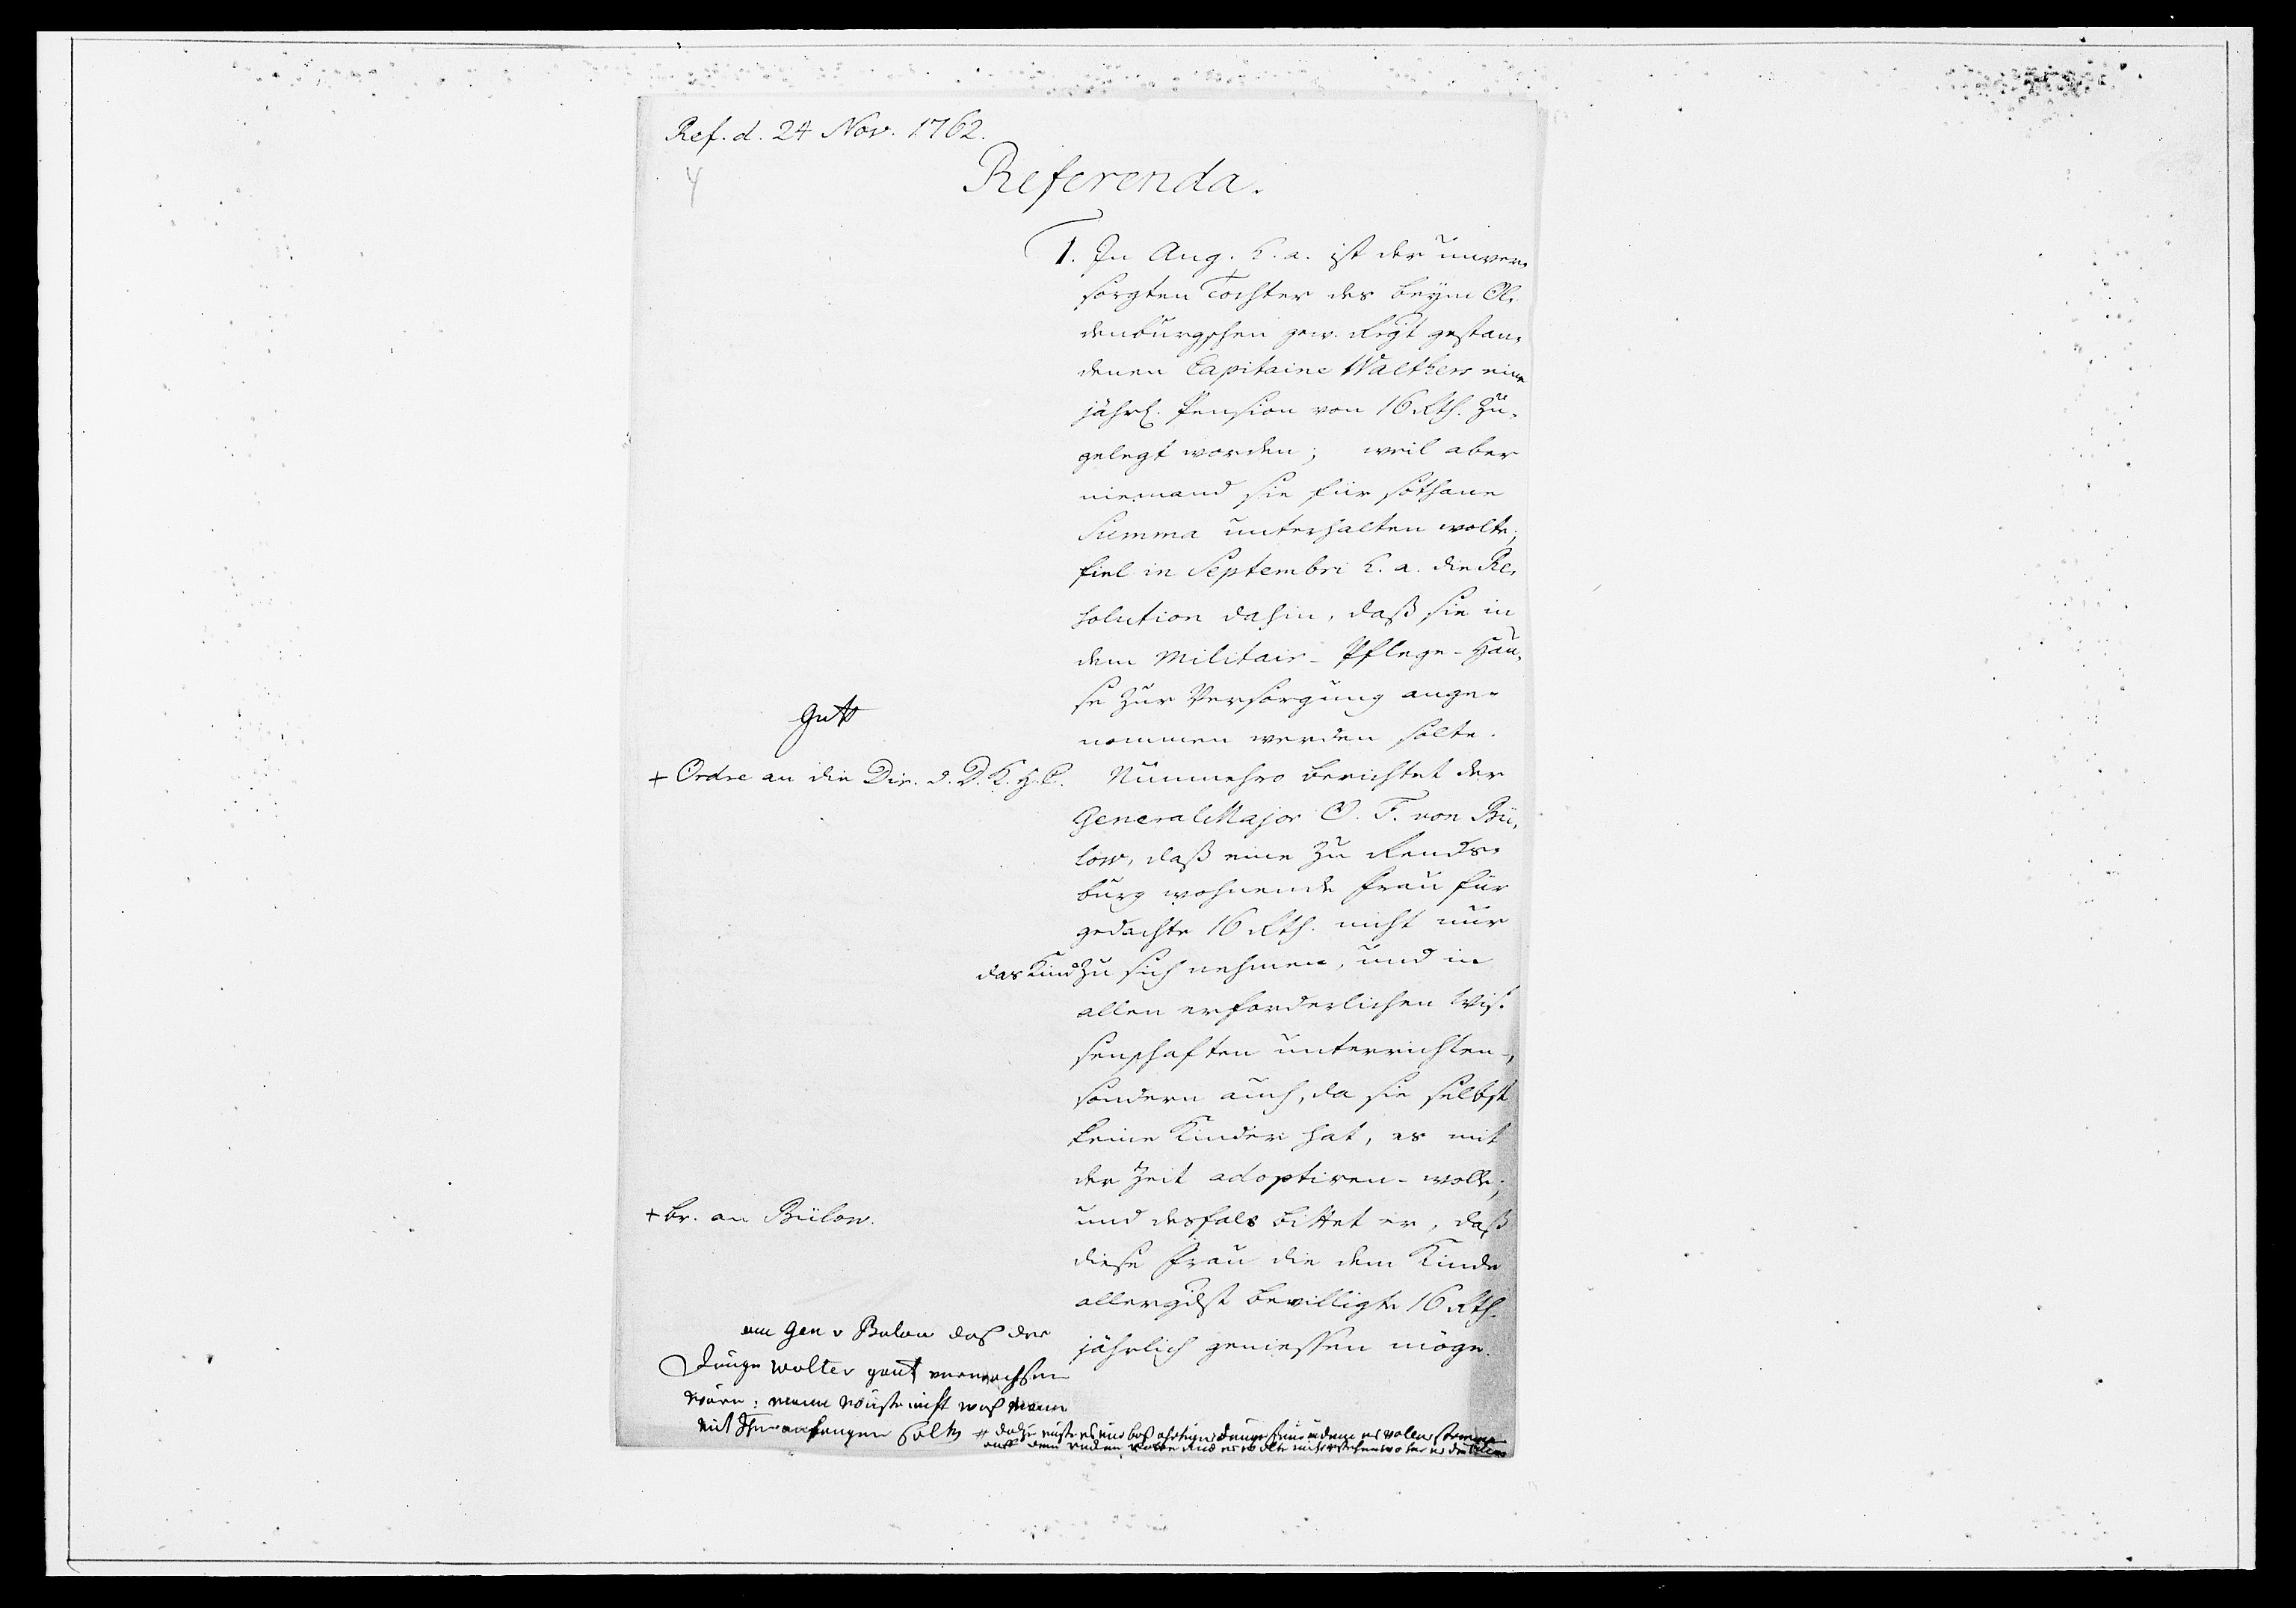 Ref. d. 24 Nov. 1762.
4
Referenda.
1. In Aug. h. a. ist der unver-
sorgten Tochter des beym Ol-
denburgschen gew. Regt gestan-
denen Capitaine Walthers eine
jährl. Pension von 16 Rth. zu-
gelegt worden; weil aber
niemand sie für sothane
Summa unterhalten wolte;
fiel in Septembri h. a. die Re-
solution dahin, daß sie in
dem Militair-Pflege-Hau-
se zur Versorgung ange-
nommen werden solte.
Gutt
+ Ordre an die Dir. d. D. K. H. C.
Nunmehro berichtet der
General Major C. F. von Bü-
low, daß eine zu Rends-
burg wohnende Frau für
gedachte 16 Rth. nicht nur
das Kind zu sich nehmen, und in
allen erforderlichen Wis-
senschaften unterrichten-,
sondern auch, da sie selbst
keine Kinder hat, es mit
der Zeit adoptiren-wolle;
und desfals bittet er, daß
diese Frau die dem Kinde
allergdst bewilligte 16 Rth.
jährlich geniessen möge.
+ br. an Bülow.
am Gen v Bulow daß der
Junge Wolter gantz verwachsen
wäre: mann wüste nicht waß mann
mit Ihm anfangen solte